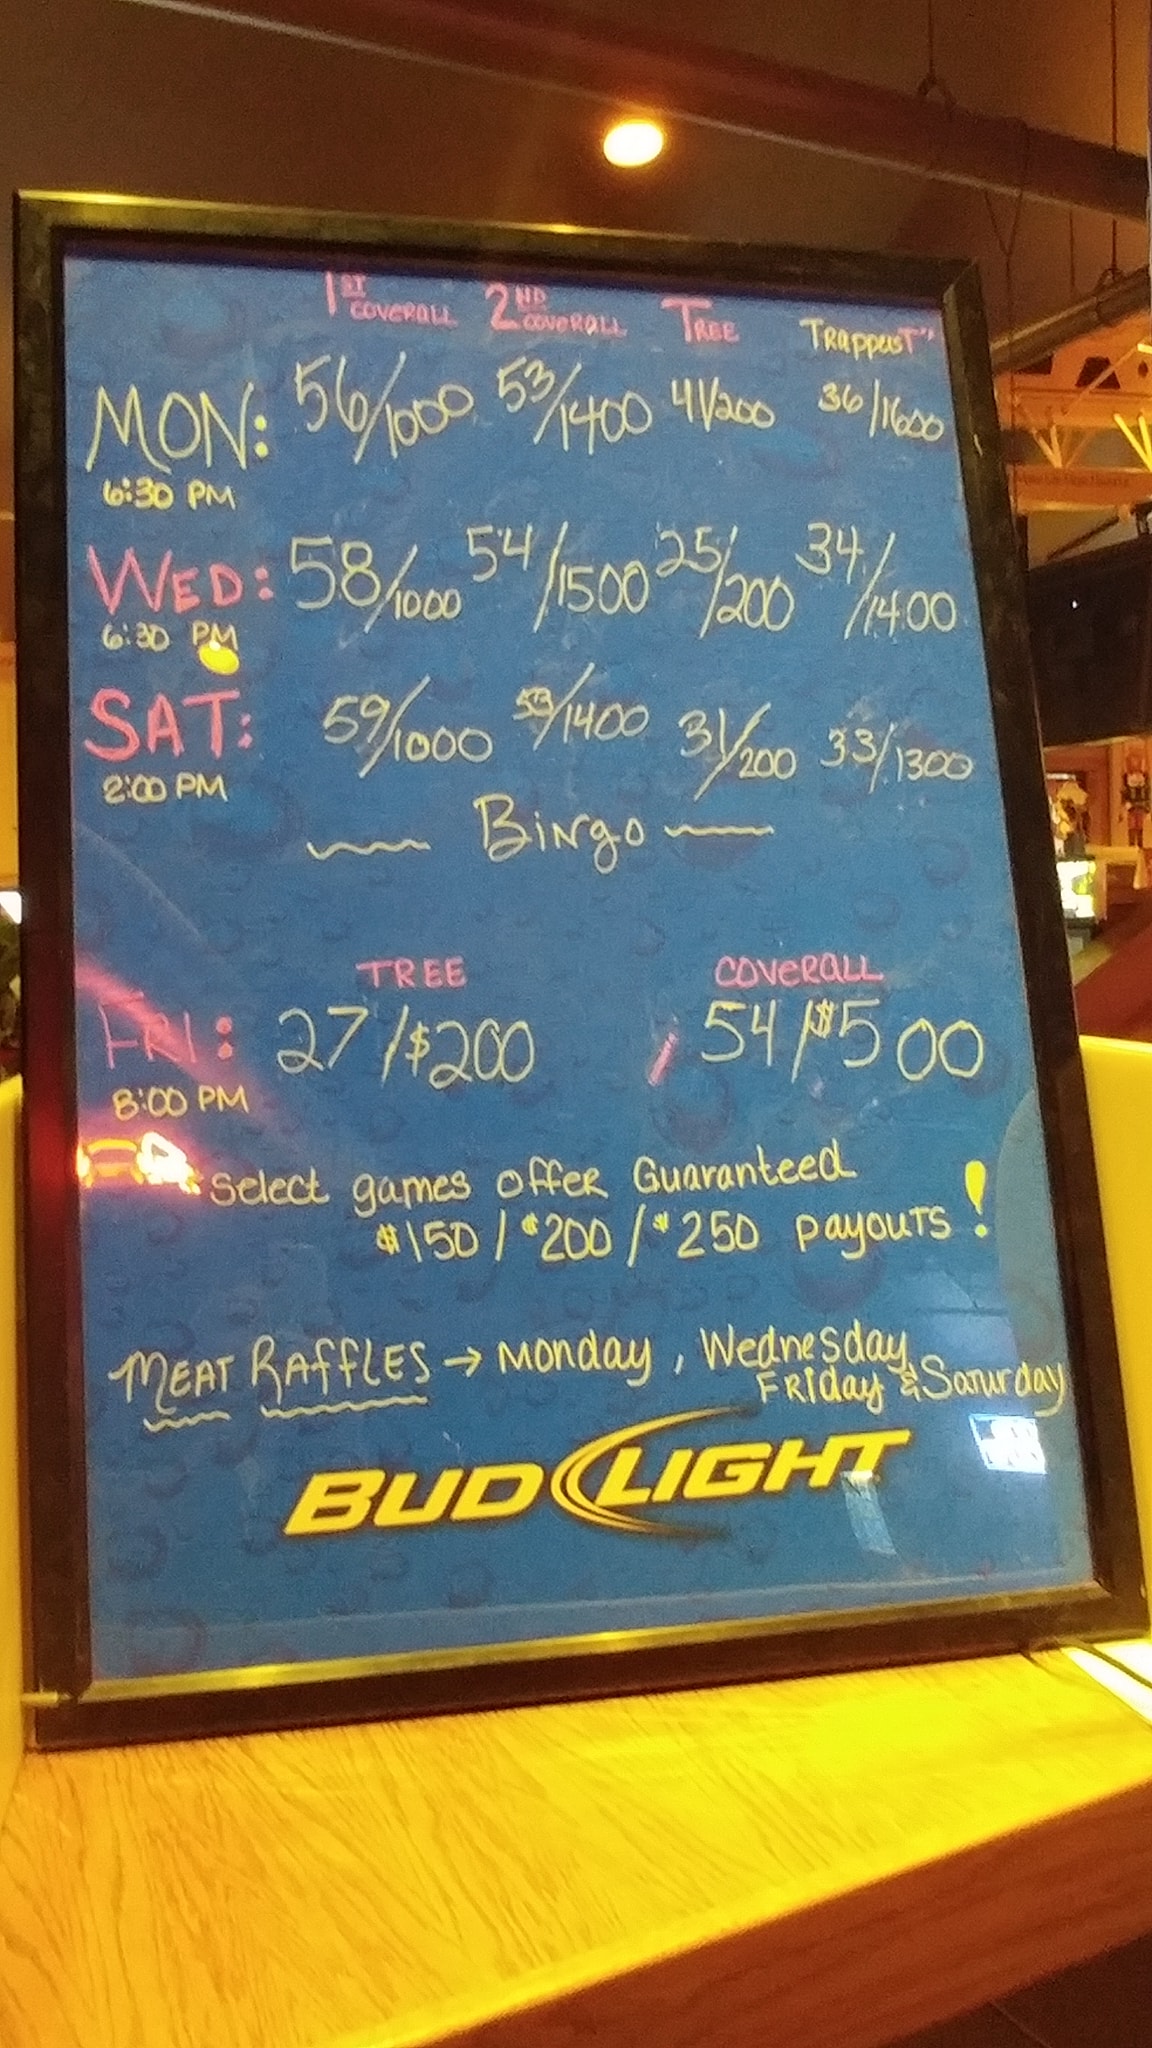 1ST COVERALL 2ND COVERALL TREE TRappers "T"
MON: 56/1000 53/1400 41/200 36/1600
6:30 PM
WED: 58/1000 54/1500 25/200 34/1400
6:30 PM
SAT: 59/1000 53/1400 31/200 33/1300
2:00 PM
Bingo
TREE COVERALL
FRI: 27/$200 54/$500
8:00 PM
Select games offer Guaranteed
$150/$200/$250 payouts!
MEAT RAFFLES → Monday, Wednesday,
Friday & Saturday
BUD LIGHT